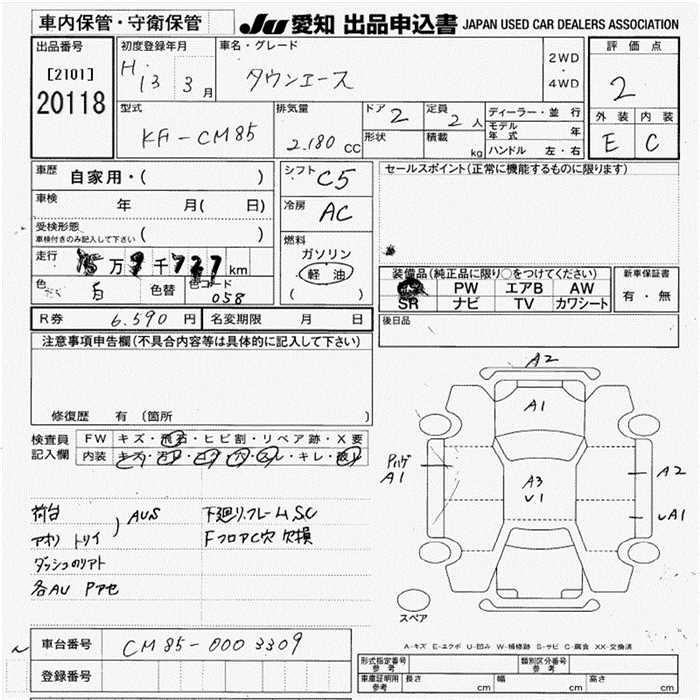 車内保管・守衛保管
JU 愛知 出品申込書 JAPAN USED CAR DEALERS ASSOCIATION
出品番号
[2101]
20118
初度登録年月
H.13 3月
車名・グレード
タウンエース
2WD
・
4WD
評価点
2
外装 内装
E C
型式
KH-CM85
排気量
2.180 CC
ドア 2
形状
定員 2 人
積載 kg
ディーラー・並行
モデル年式 年
ハンドル 左・右
車歴 自家用・( )
車検 年 月( 日)
受検形態
車検付きのみ記入して下さい ( )
走行 万 千 727 km
色 白 色替 色コード 058
シフト C5
冷房 AC
燃料
ガソリン
軽油
( )
セールスポイント(正常に機能するものに限ります)
装備品(純正品に限り○をつけてください)
PW エアB AW
SR ナビ TV カワシート
新車保証書
有・無
後日品
R券 6.590 円 名変期限 月 日
注意事項申告欄(不具合内容等は具体的に記入して下さい)
修復歴 有 (箇所
検査員
記入欄
FW キズ・飛石・ヒビ割・リペア跡・X要
内装
荷台
アオリ トリイ ) AUS
ダッシュのリアト
各AU Pアセ
下廻り.フレームSC
FフロアC穴 欠損
A2
A1
A3
U1
A1
A2
UA1
スペア
A-キズ E-エクボ U-凹み W-補修跡 S-サビ C-腐食 XX-交換済
車台番号 CM85-0003309
登録番号
型式指定番号 参考
類別区分番号 参考
車庫証明用 参考 長さ cm 幅 cm 高さ cm